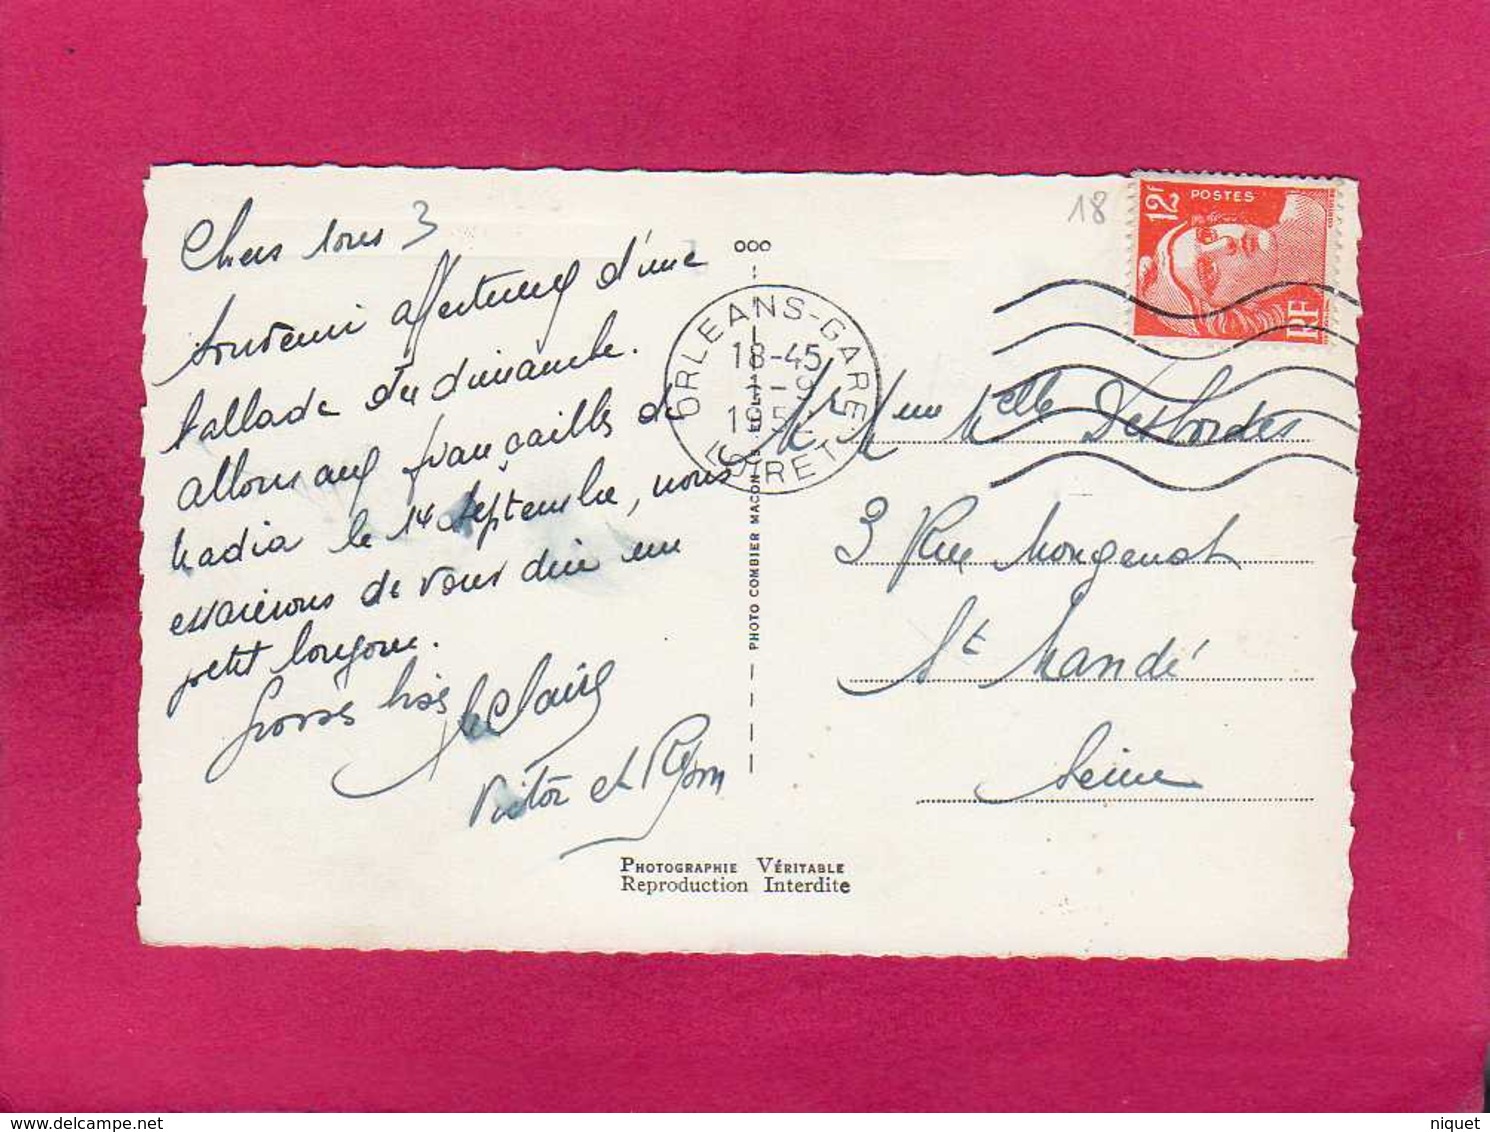 Chers tous 3
Souvenir affectueux d'une
ballade du dimanche.
allons aux françailles de
Nadia le 14 septembre, nous
essaierons de vous dire un
petit bonjour.
Grosses bises
Victor et
18
12F
POSTES
RF
ORLEANS-GARE
18-45
1-9
195
LOIRET
Mr Mme Melle Desbordes
3 Rue Mongenot
St Mandé
Seine
PHOTO COMBIER MACON
PHOTOGRAPHIE VÉRITABLE
Reproduction Interdite
niquet